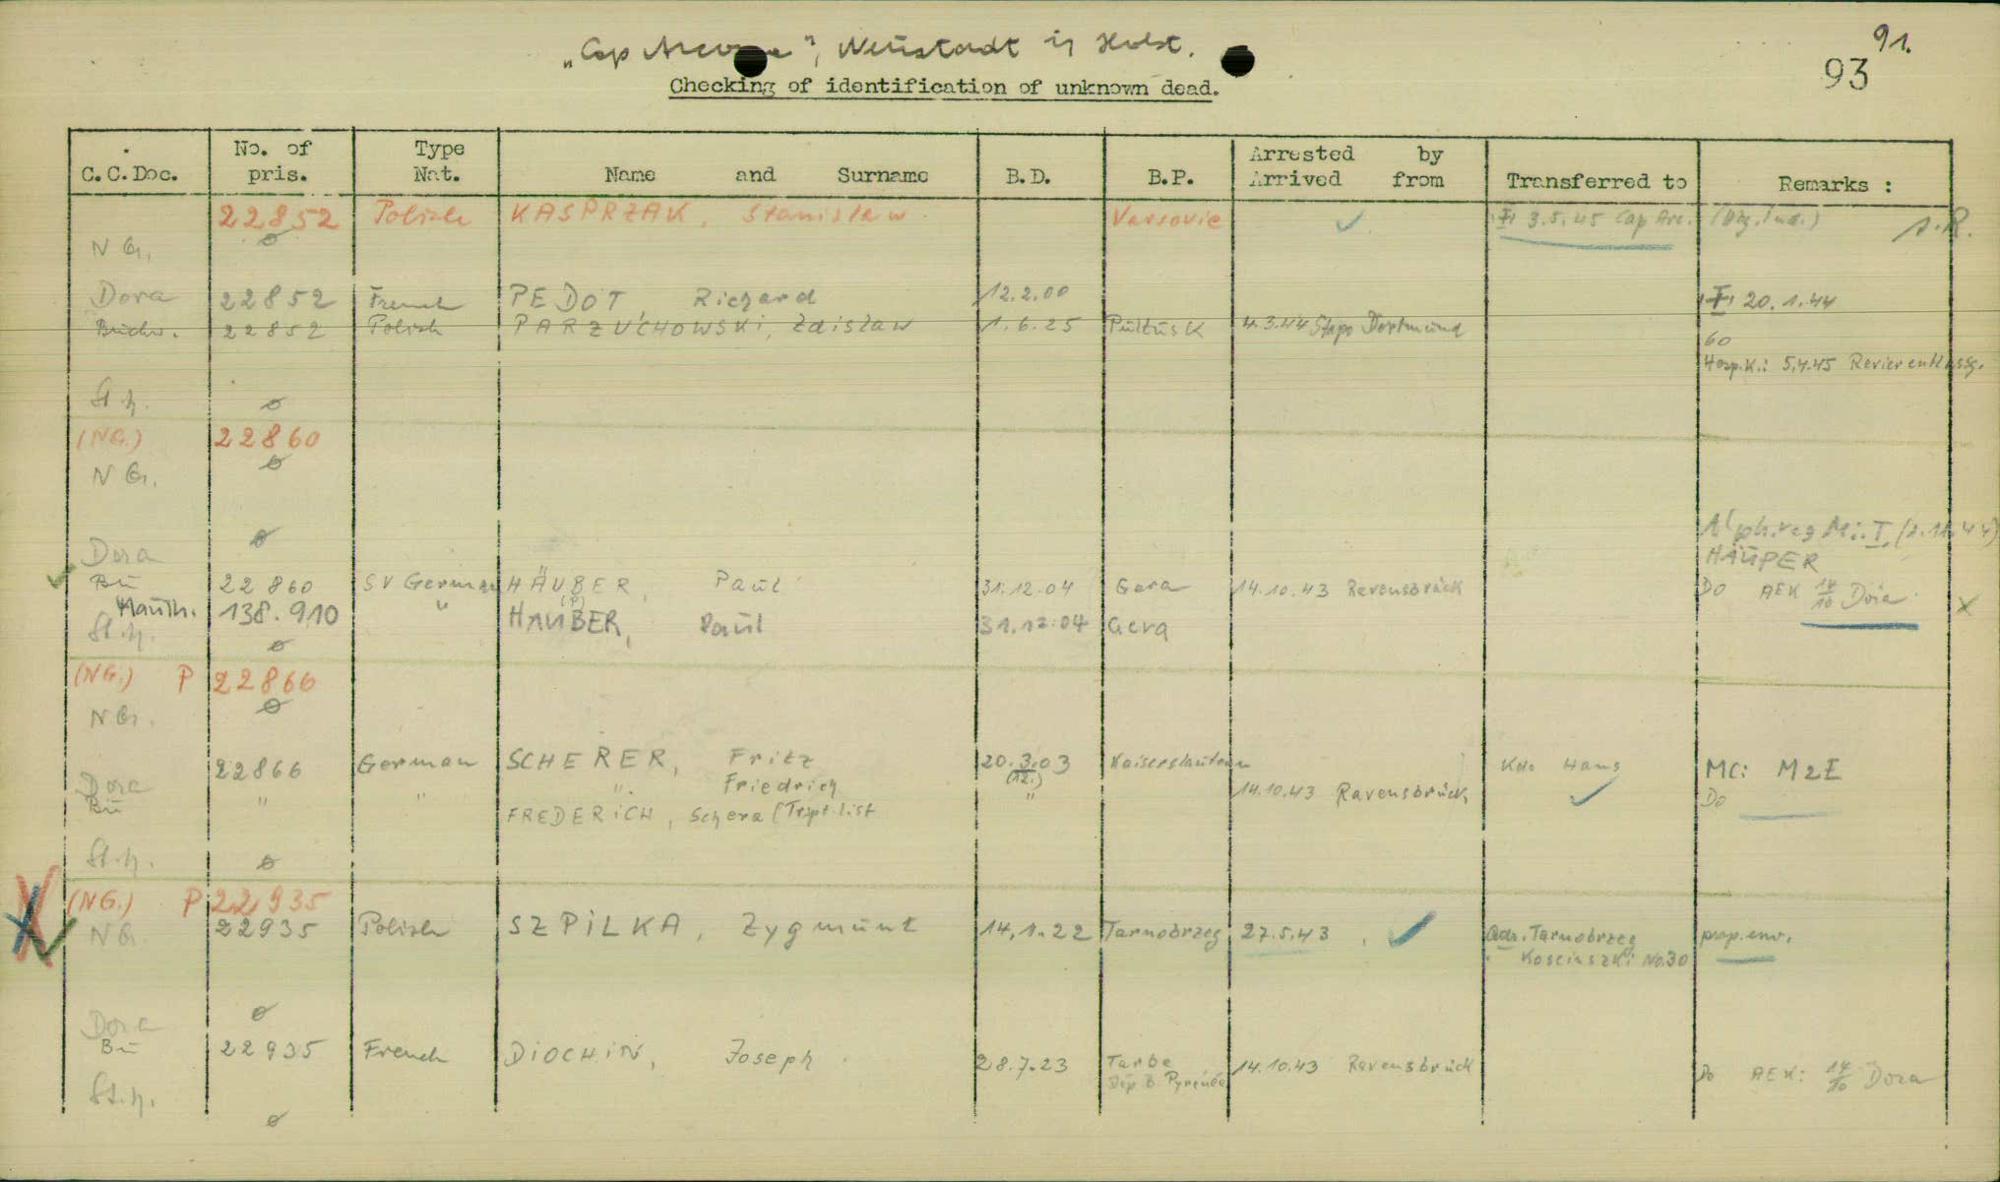 „Cap Arcona", Neustadt in Holst.
91.
93
Checking of identification of unknown dead.
C.C.Doc. No. of pris. Type Nat. Name and Surname B.D. B.P. Arrested by Arrived from Transferred to Remarks :
22852 Polish KASPRZAK, Stanisław Varsovie ✓ 3.5.45 Cap Arc.
N G. ø
Dora 22852 French PEDOT Richard 12.2.00 20.1.44
Buchw. 22852 Polish PARZUCHOWSKI, Zdisław 1.6.25 Pultusk 4.3.44 Stapo Dortmund 60
Hosp.K.: 5.4.45
St.h. ø
(NG.) 22860
N G. ø
ø
HÄUPER
Dora
Bu 22860 SV German HÄUBER, Paul 31.12.04 Gera 14.10.43 Ravensbrück Do AEK 14/10 Dora
(P)
Mauth. 138.910 " HAUBER, Paul 31.12.04 Gera
St.h. ø
(NG.) P 22866
N G. ø
Dora 22866 German SCHERER, Fritz 20.3.03 Kaiserslautern Kdo Hans MC: M2E
(12.)
Bu " " " Friedrich " 14.10.43 Ravensbrück ✓ Do
FREDERICH, Schera (Trspt.list
St.h. ø
(NG.) P 22935
N G. 22935 Polish SZPILKA, Zygmunt 14.1.22 Tarnobrzeg 27.5.43 ✓ Adr. Tarnobrzeg prop.env.
No.30
Dora ø
Bu 22935 French DIOCHIN, Joseph 28.7.23 Tarbe 14.10.43 Ravensbrück Do AEK: 14/10 Dora
St.h. ø